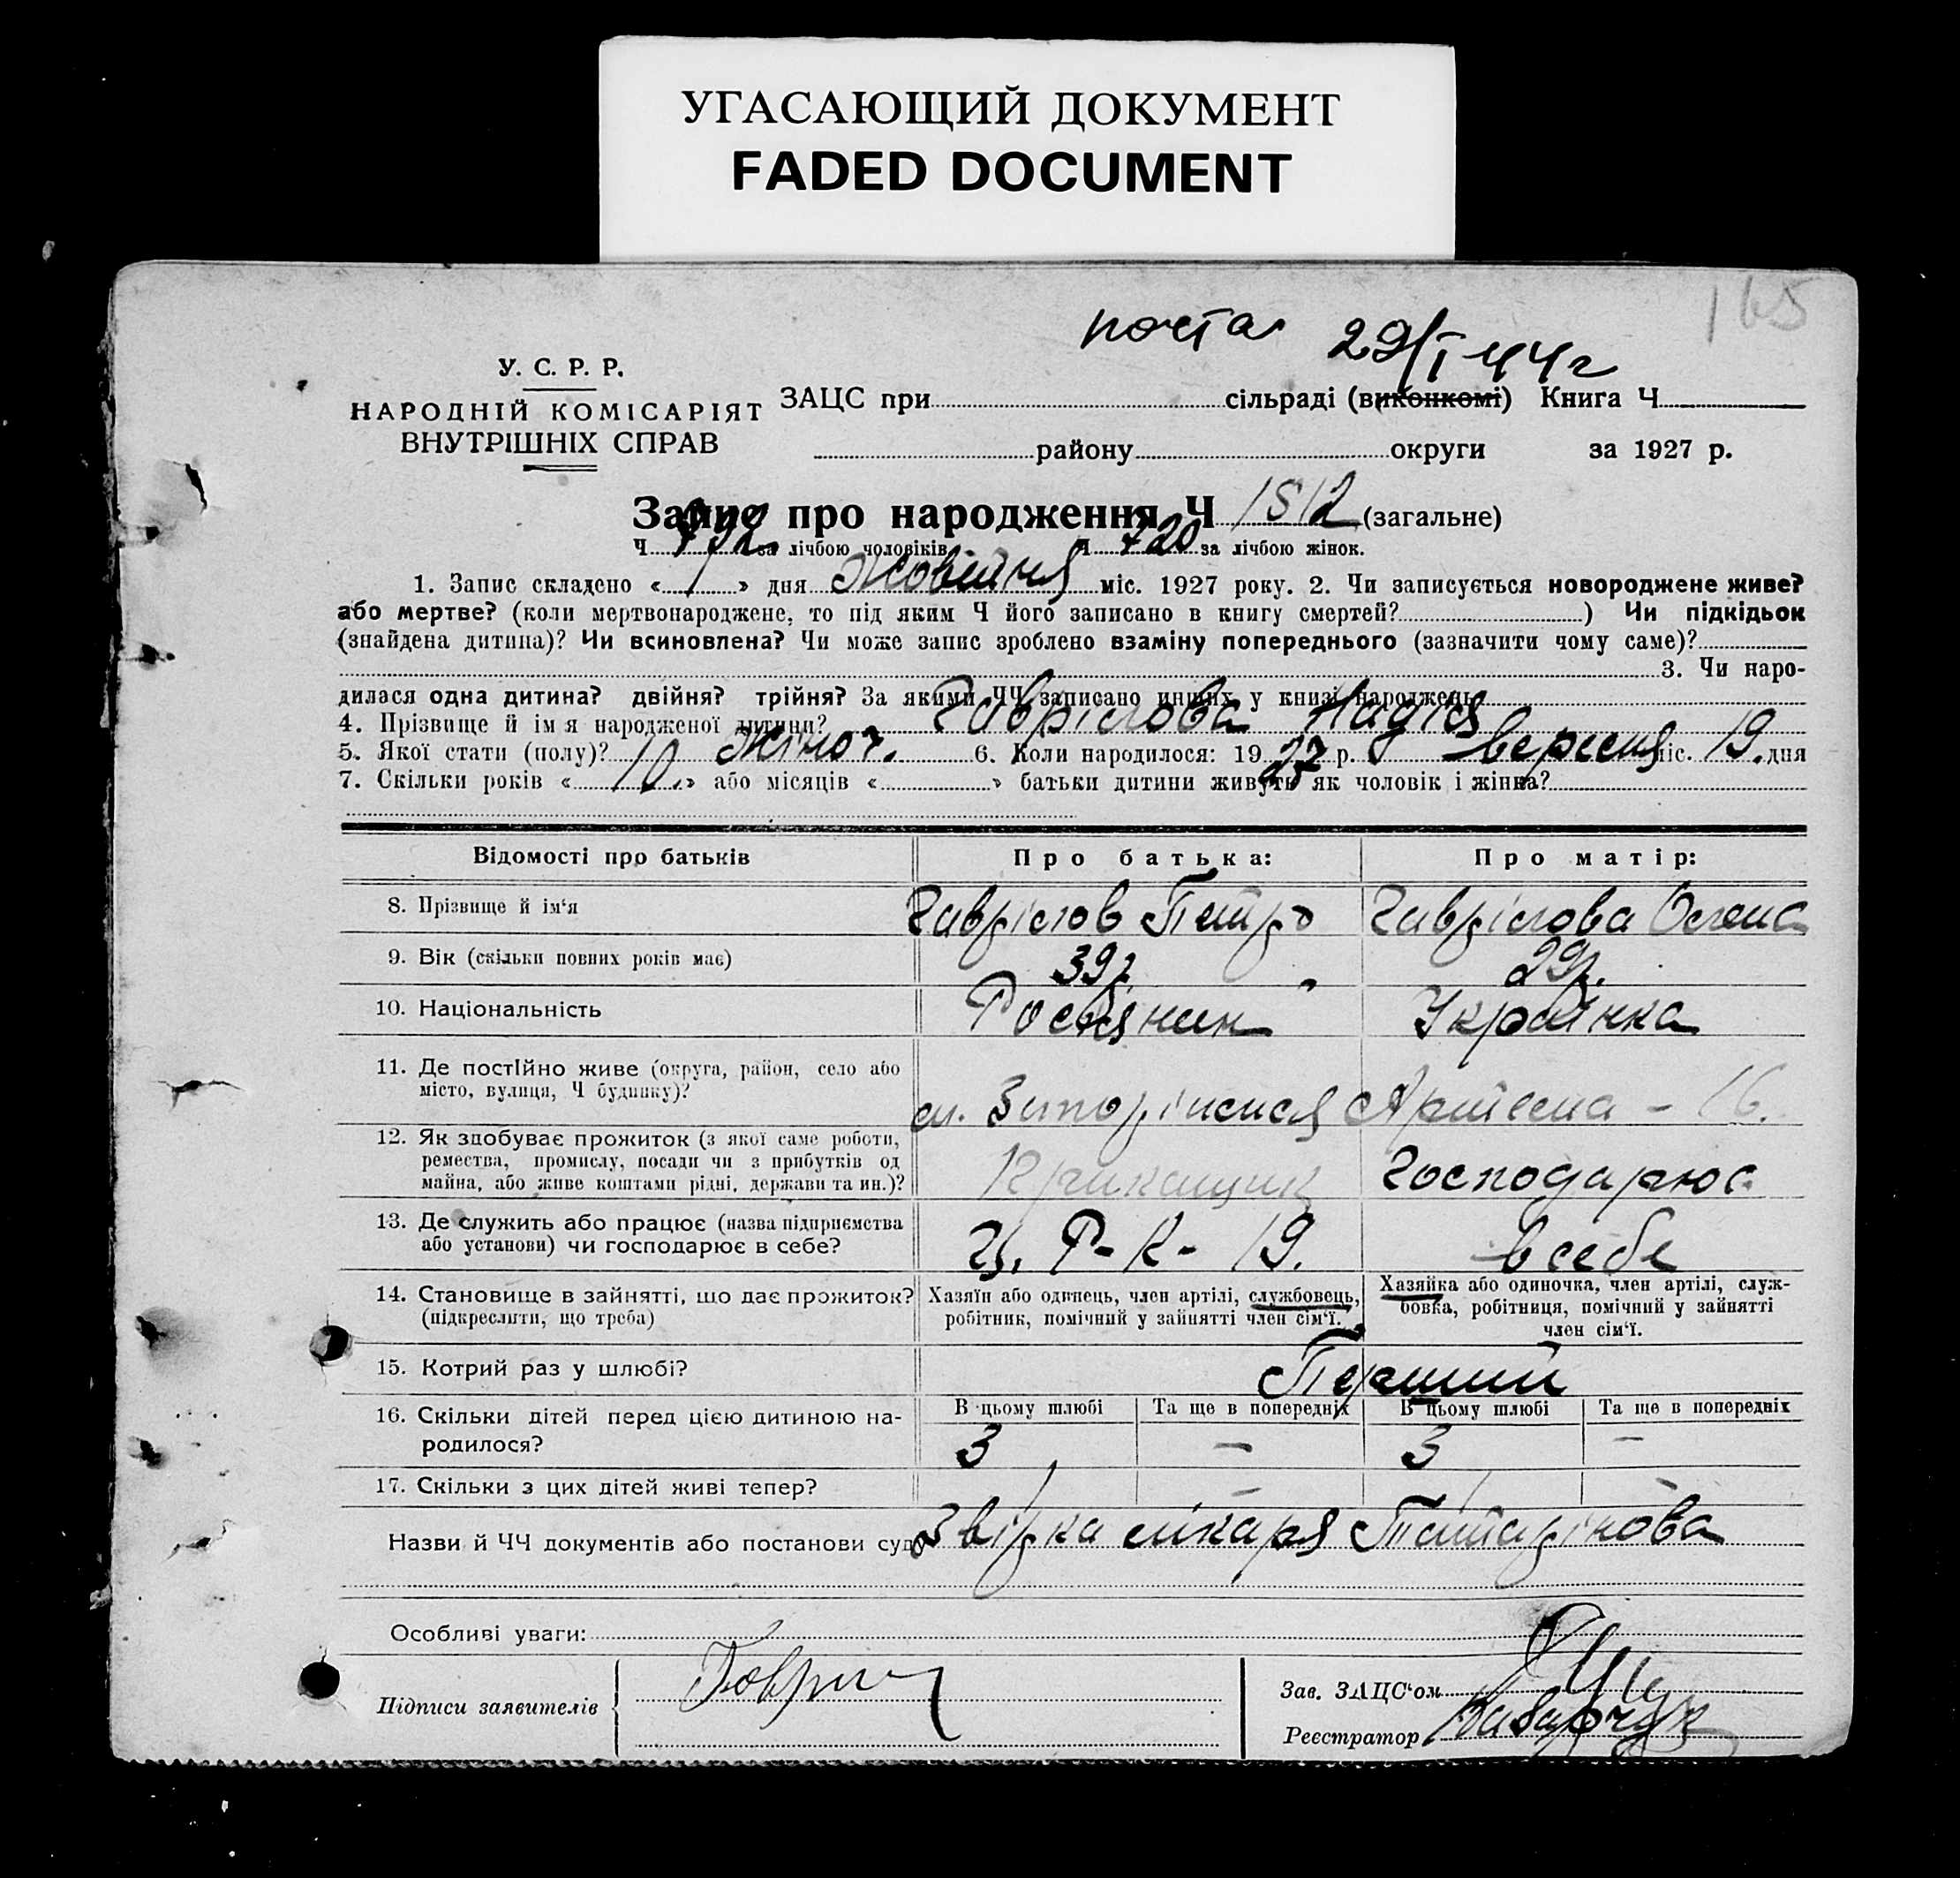 УГАСАЮЩИЙ ДОКУМЕНТ
FADED DOCUMENT
165
почта 29/I 44 г
У. С. Р. Р.
НАРОДНІЙ КОМІСАРІЯТ
ВНУТРІШНІХ СПРАВ
ЗАЦС при сільраді (виконкомі) Книга Ч
району округи за 1927 р.
Запис про народження Ч 1512 (загальне)
Ч 792 за лічбою чоловіків Ч 720 за лічбою жінок.
1. Запис складено « 1 » дня Жовтня міс. 1927 року. 2. Чи записується новороджене живе?
або мертве? (коли мертвонароджене, то під яким Ч його записано в книгу смертей? ) Чи підкідьок
(знайдена дитина)? Чи всиновлена? Чи може запис зроблено взаміну попереднього (зазначити чому саме)?
3. Чи наро-
дилася одна дитина? двійня? трійня? За якими ЧЧ записано инших у книзі народжень
4. Прізвище й ім я народженої дитини? Гаврілова Надія
5. Якої стати (полу)? жіноч. 6. Коли народилося: 1927 р. вересня міс. 19. дня
7. Скільки років « 10. » або місяців « » батьки дитини живуть як чоловік і жінка?
Відомості про батьків Про батька: Про матір:
8. Прізвище й ім'я Гаврілов Петро Гаврілова Олена
9. Вік (скільки повних років має) 39 р. 29 р.
10. Національність Росіянин Українка
11. Де постійно живе (округа, район, село або
місто, вулиця, Ч будинку)? Артема - 16.
12. Як здобуває прожиток (з якої саме роботи,
ремества, промислу, посади чи з прибутків од
майна, або живе коштами рідні, держави та ин.)? Прикащик Господарює
13. Де служить або працює (назва підприємства
або установи) чи господарює в себе? Ц. Р - К - 19. в себе
14. Становище в зайнятті, що дає прожиток?
(підкреслити, що треба)
Хазяїн або одинець, член артілі, службовець,
робітник, помічний у зайнятті член сім'ї.
Хазяйка або одиночка, член артілі, служ-
бовка, робітниця, помічний у зайнятті
член сім'ї.
15. Котрий раз у шлюбі? Перший
16. Скільки дітей перед цією дитиною на-
родилося?
В цьому шлюбі Та ще в попередніх В цьому шлюбі Та ще в попередніх
3 — 3 —
17. Скільки з цих дітей живі тепер? 1 — 1 —
Назви й ЧЧ документів або постанови суду Звірка лікаря
Особливі уваги:
Підписи заявителів
Зав. ЗАЦС'ом
Реєстратор